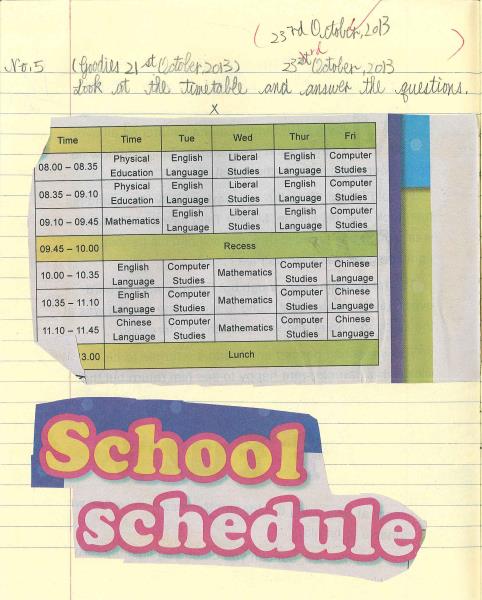 (23rd October, 2013)
No.5 (Goodies 21st October 2013) 23rd October, 2013
Look at the timetable and answer the questions.
X
Time Time Tue Wed Thur Fri
08.00 – 08.35 Physical Education English Language Liberal Studies English Language Computer Studies
08.35 – 09.10 Physical Education English Language Liberal Studies English Language Computer Studies
09.10 – 09.45 Mathematics English Language Liberal Studies English Language Computer Studies
09.45 – 10.00 Recess
10.00 – 10.35 English Language Computer Studies Mathematics Computer Studies Chinese Language
10.35 – 11.10 English Language Computer Studies Mathematics Computer Studies Chinese Language
11.10 – 11.45 Chinese Language Computer Studies Mathematics Computer Studies Chinese Language
13.00 Lunch
School
schedule